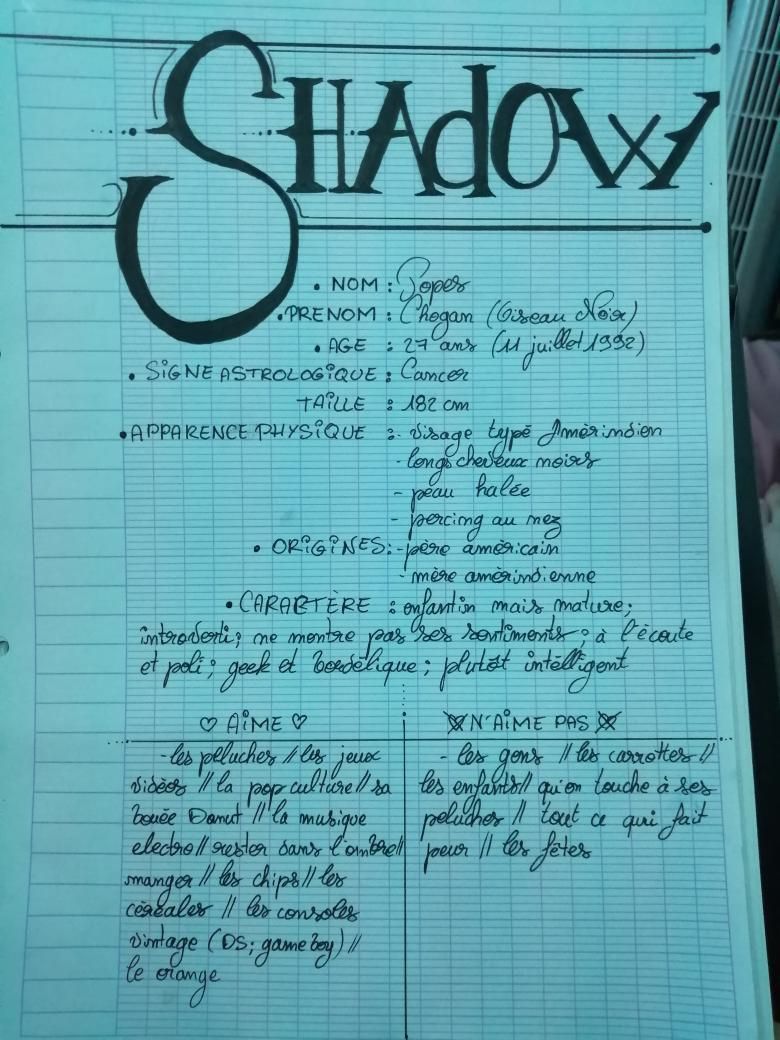 SHAdOW
• NOM : Popes
• PRENOM : Chogan (Oiseau Noir)
• AGE : 27 ans (11 juillet 1992)
• SIGNE ASTROLOGIQUE : Cancer
TAILLE : 182 cm
• APPARENCE PHYSIQUE : - visage typé Amérindien
- longs cheveux noirs
- peau halée
- percing au nez
• ORIGINES : - père américain
- mère amérindienne
• CARACTÈRE : enfantin mais mature ;
introverti ; ne montre pas ses sentiments ; à l'écoute
et poli ; geek et bordélique ; plutôt intélligent
♡ AIME ♡
- les peluches // les jeux
vidéos // la pop culture // sa
bouée Donut // la musique
electro // rester dans l'ombre //
manger // les chips // les
céréales // les consoles
vintage (DS ; game boy) //
le orange
N'AIME PAS
- les gens // les carrottes //
les enfants // qu'on touche à ses
peluches // tout ce qui fait
peur // les fêtes